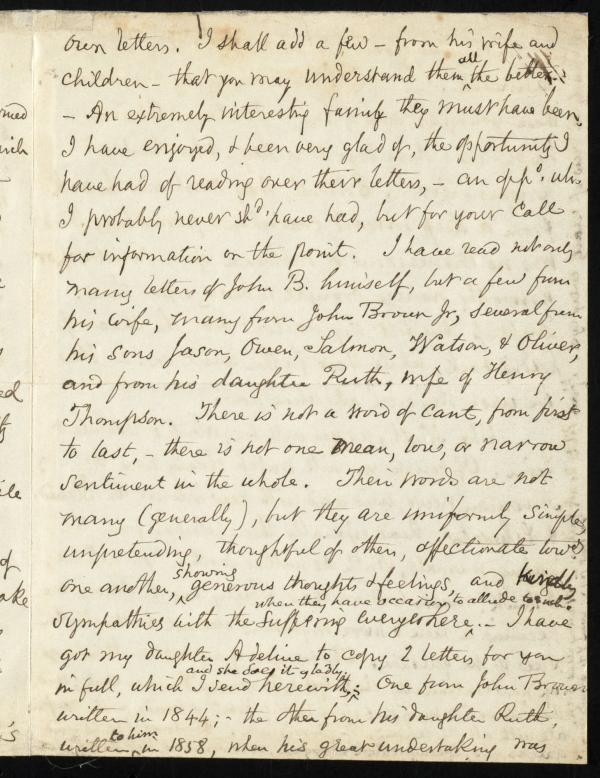 own letters. I shall add a few – from his wife and
children – that you may understand them all the better.
– An extremely interesting family they must have been.
I have enjoyed, & been very glad of, the opportunity I
have had of reading over their letters, – an oppo. wh.
I probably never shd. have had, but for your call
for information on the point. I have read not only
many letters of John B. himself, but a few from
his wife, many from John Brown Jr, several from
his sons Jason, Owen, Salmon, Watson, & Oliver,
and from his daughter Ruth, wife of Henry
Thompson. There is not a word of cant, from first
to last, – there is not one mean, low, or narrow
sentiment in the whole. Their words are not
many (generally), but they are uniformly simple,
unpretending, thoughtful of others, affectionate towds.
one another, showing generous thoughts & feelings, and
when they have occasion to allude to
sympathies with the suffering everywhere. – I have
got my daughter Adeline to copy 2 letters for you
and she does it gladly,
in full, which I send herewith; One from John Brown
written in 1844; – the other from his daughter Ruth,
written to him in 1858, when his great undertaking was